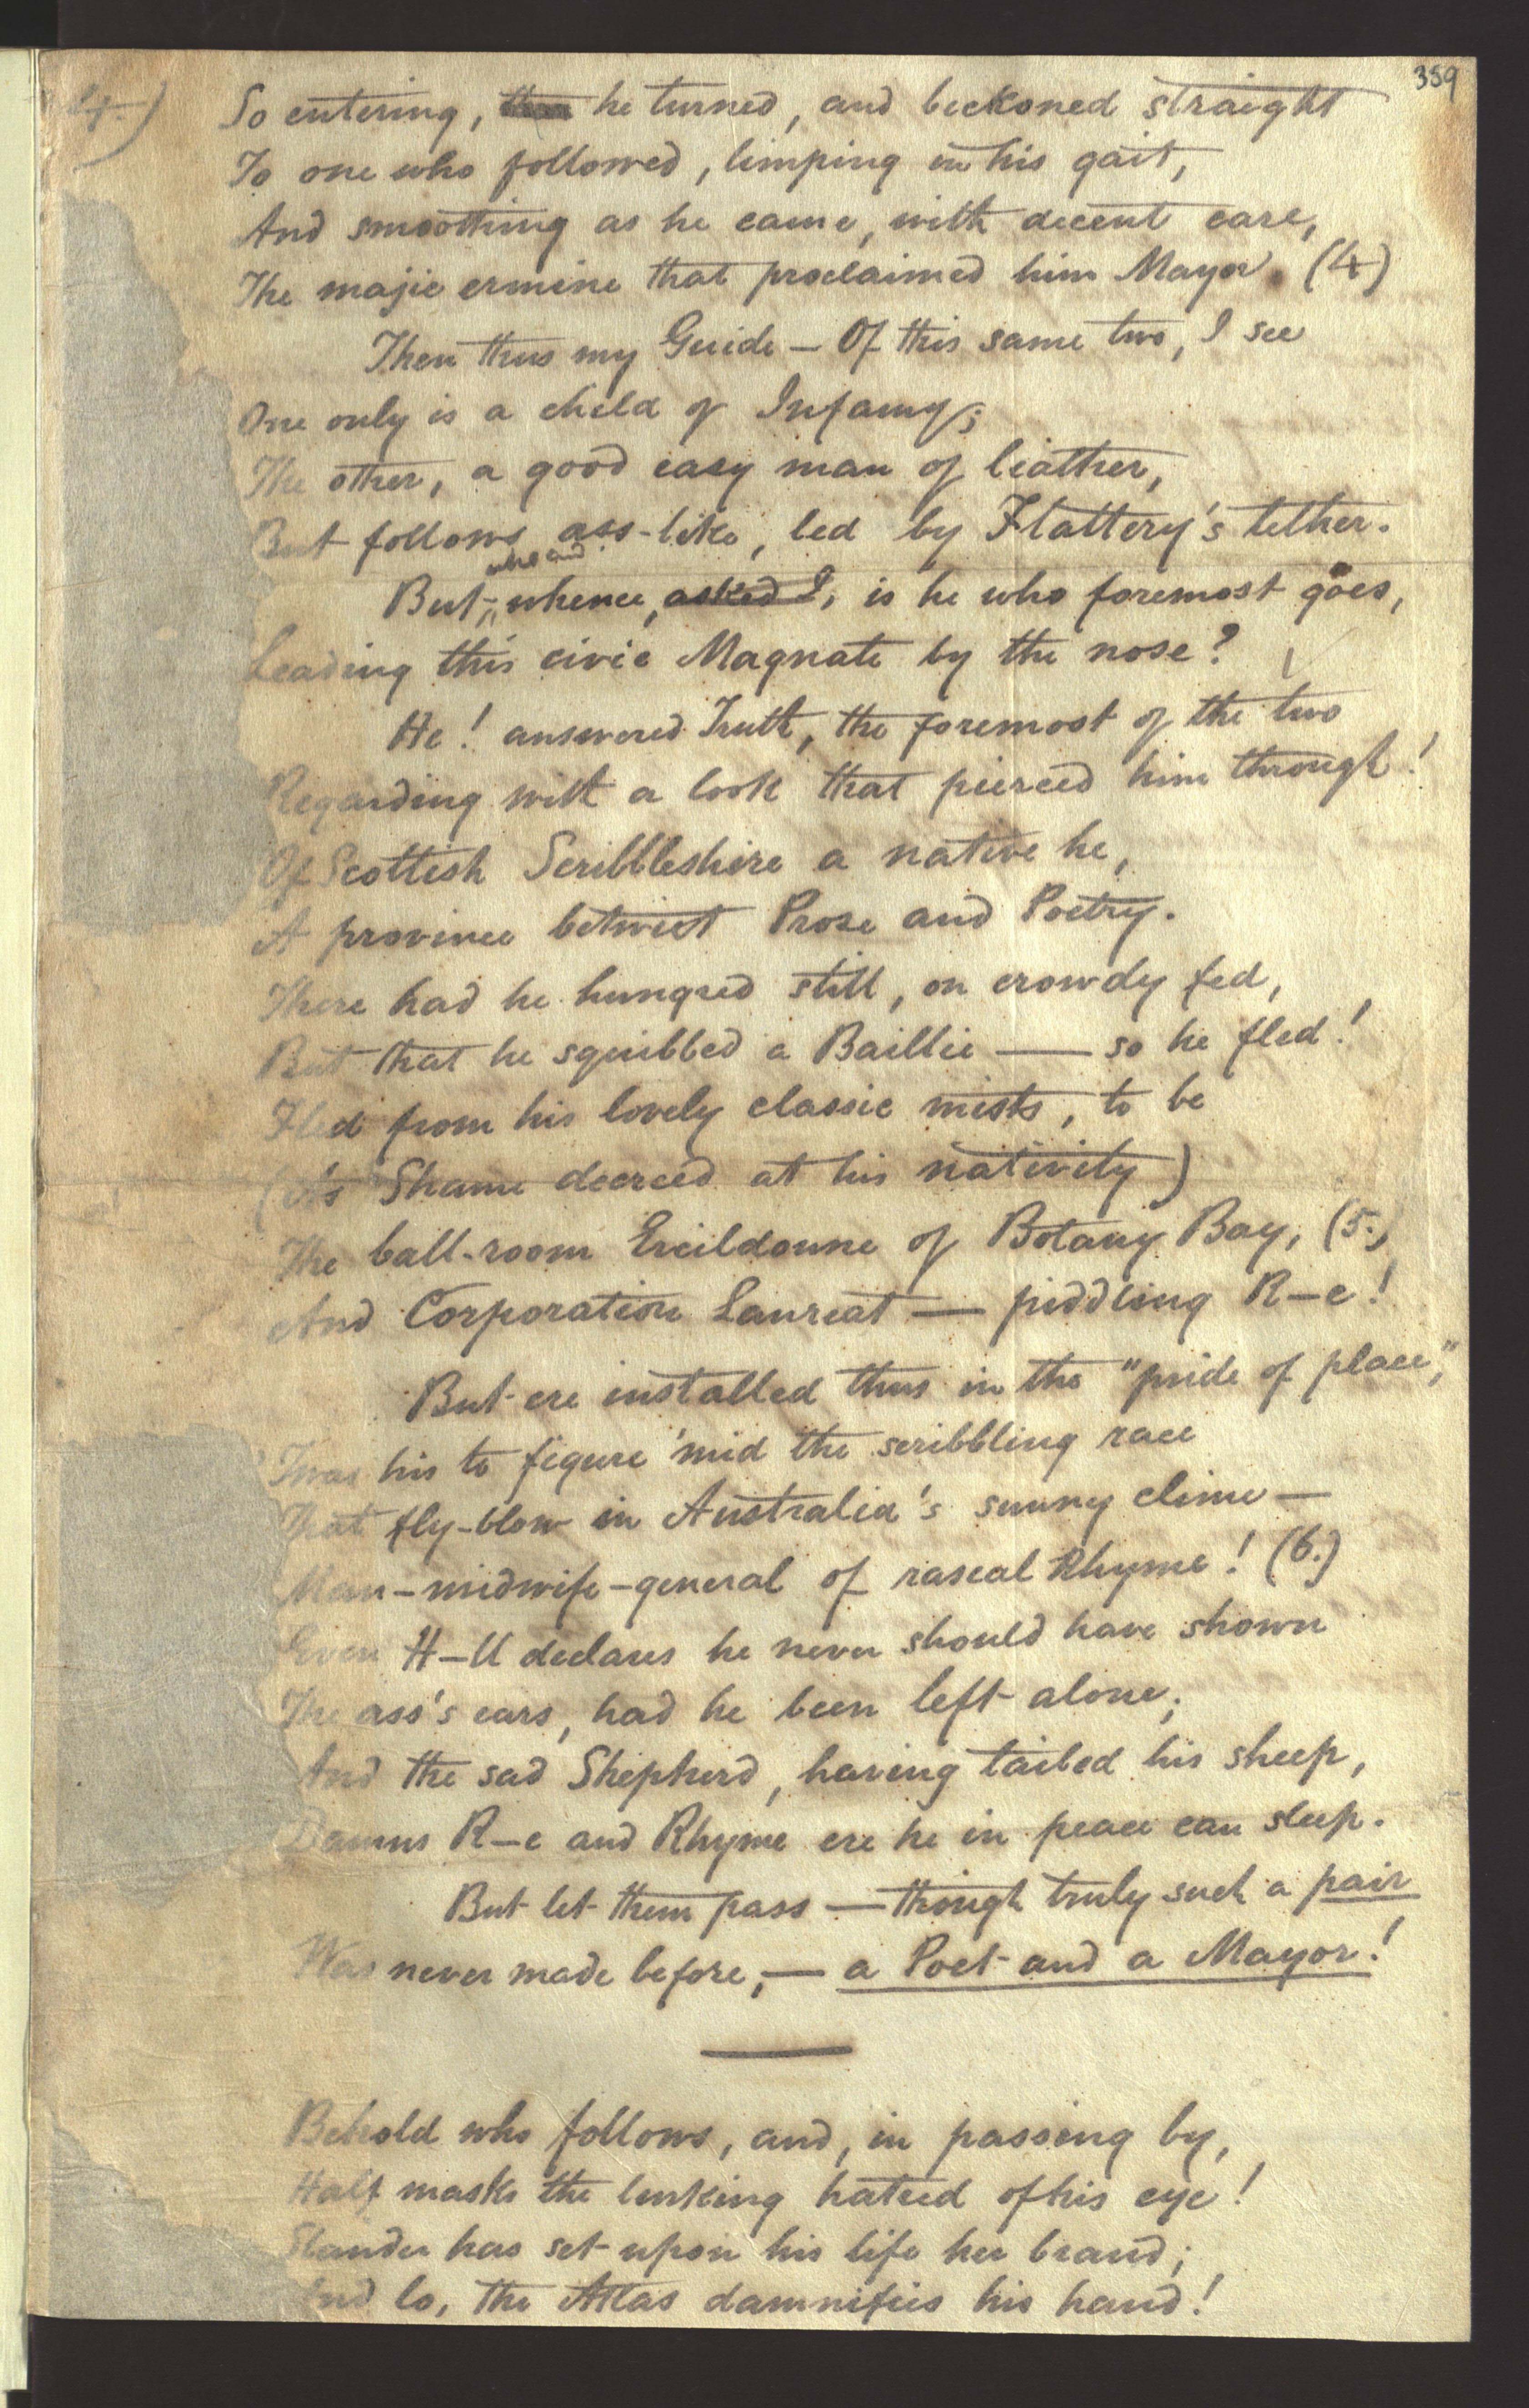 359
4.)
So entering, he turned, and beckoned straight
To one who followed, limping in his gait,
And smoothing as he came, with decent care,
The majic ermine that proclaimed him Mayor. (4)
Then thus my Guide — Of this same two, I see
One only is a child of Infamy;
The other, a good easy man of leather,
But follows ass-like, led by Flattery's tether.
who and
But, whence, asked I, is he who foremost goes,
Leading this civic Magnate by the nose?
He! answered Truth, the foremost of the two
Regarding with a look that pierced him through!
Of Scottish Scribbleshire a native he,
A province betwixt Prose and Poetry.
There had he hungred still, on crowdy fed,
But that he squibbed a Baillie — so he fled!
Fled from his lovely classic mists, to be
(Shame decreed at his nativity)
The ball-room Ercildoune of Botany Bay, (5.)
And Corporation Laureat — piddling R—e!
But ere installed thus in the "pride of place",
Twas his to figure 'mid the scribbling race
That fly-blow in Australia's sunny clime —
Man-midwife-general of rascal Rhyme! (6.)
Even H—ll declares he never should have shown
The ass's ears, had he been left alone;
And the sad Shepherd, having tailed his sheep,
Damns R—e and Rhyme ere he in peace can sleep.
But let them pass — though truly such a pair
Was never made before, — a Poet and a Mayor!
Behold who follows, and, in passing by,
Half masks the lurking hatred of his eye!
Slander has set upon his life her brand;
And lo, the Atlas damnifies his hand!